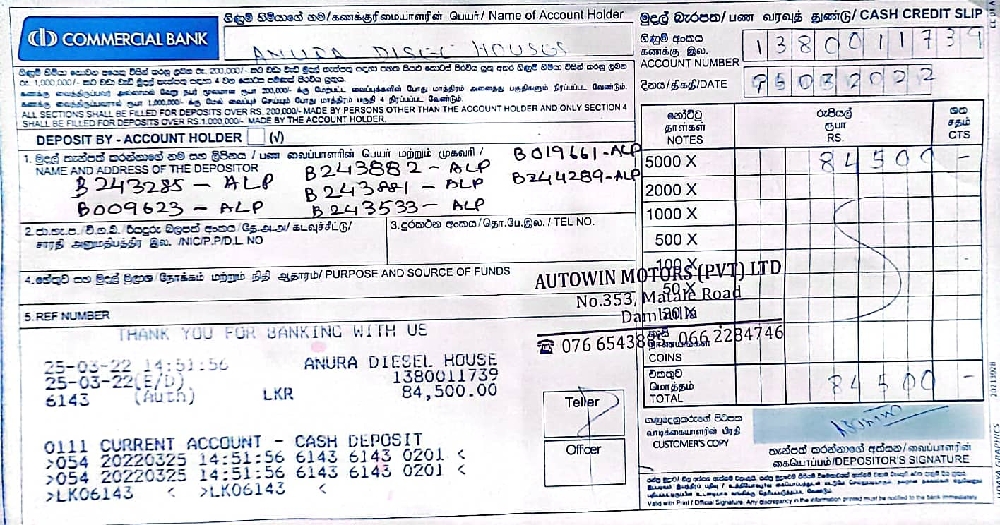 COMMERCIAL BANK
ගිණුම් හිමියාගේ නම/கணக்குரிமையாளரின் பெயர்/ Name of Account Holder
ANURA DISEL HOUSES
මුදල් බැරපත/பண வரவுத் துண்டு/ CASH CREDIT SLIP
ගිණුම් අංකය
கணக்கு இல.
ACCOUNT NUMBER
1380011739
දිනය/திகதி/DATE
25032022
ALL SECTIONS SHALL BE FILLED FOR DEPOSITS OVER RS. 200,000/- MADE BY PERSONS OTHER THAN THE ACCOUNT HOLDER AND ONLY SECTION 4
SHALL BE FILLED FOR DEPOSITS OVER RS.1,000,000/- MADE BY THE ACCOUNT HOLDER.
DEPOSIT BY - ACCOUNT HOLDER (√)
1. මුදල් තැන්පත් කරන්නාගේ නම සහ ලිපිනය / பண வைப்பாளரின் பெயர் மற்றும் முகவரி /
NAME AND ADDRESS OF THE DEPOSITOR
B243882 - ALP B019661-ALP
B243285 - ALP B243881 - ALP B244289-ALP
B009623 - ALP B243533 - ALP
3.දුරකථන අංකය/தொ.பே.இல./ TEL NO.
சாரதி அனுமதிப்பத்திர இல. /NIC/P.P/D.L NO
4.හේතුව සහ මුදල් මූලාශ්‍ර/நோக்கம் மற்றும் நிதி ஆதாரம்/ PURPOSE AND SOURCE OF FUNDS
5. REF NUMBER
THANK YOU FOR BANKING WITH US
25-03-22 14:51:56 ANURA DIESEL HOUSE
25-03-22(E/D) 1380011739
6143 (Auth) LKR 84,500.00
0111 CURRENT ACCOUNT - CASH DEPOSIT
>054 20220325 14:51:56 6143 6143 0201 <
>054 20220325 14:51:56 6143 6143 0201 <
>LK06143 < >LK06143 <
AUTOWIN MOTORS (PVT) LTD
No.353, Matale Road
Dambulla
Teller
Officer
නෝට්ටු
தாள்கள்
NOTES
රුපියල්
ரூபா
RS.
ශත
சதம்
CTS
5000 X 84500 -
2000 X
1000 X
500 X
100 X
50 X
20 X
COINS
එකතුව
மொத்தம்
TOTAL 84500 -
ගනුදෙනුකරුගේ පිටපත
வாடிக்கையாளரின் பிரதி
CUSTOMER'S COPY
තැන්පත් කරන්නාගේ අත්සන/வைப்பாளரின்
கையொப்பம்/DEPOSITOR'S SIGNATURE
Valid with Print / Official Signature. Any discrepancy in the information printed must be notified to the Bank immediately